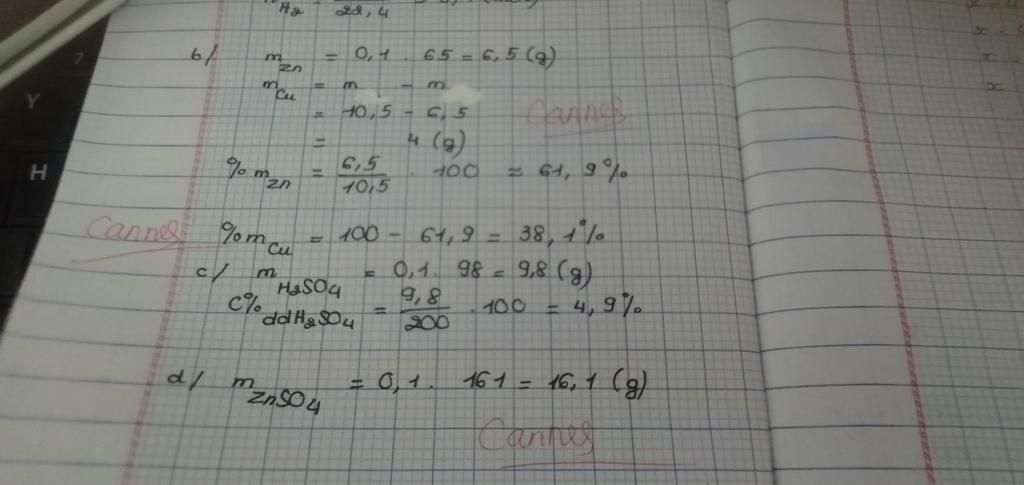 H2 22,4
b/ mZn = 0,1 . 65 = 6,5 (g)
mCu = m - m
= 10,5 - 6,5
= 4 (g)
Cannes
%mZn = 6,5/10,5 . 100 ≈ 61,9%
Cannes
%mCu = 100 - 61,9 = 38,1%
c/ mH2SO4 = 0,1 . 98 = 9,8 (g)
C%ddH2SO4 = 9,8/200 . 100 = 4,9%
d/ mZnSO4 = 0,1 . 161 = 16,1 (g)
Cannes
Y
H